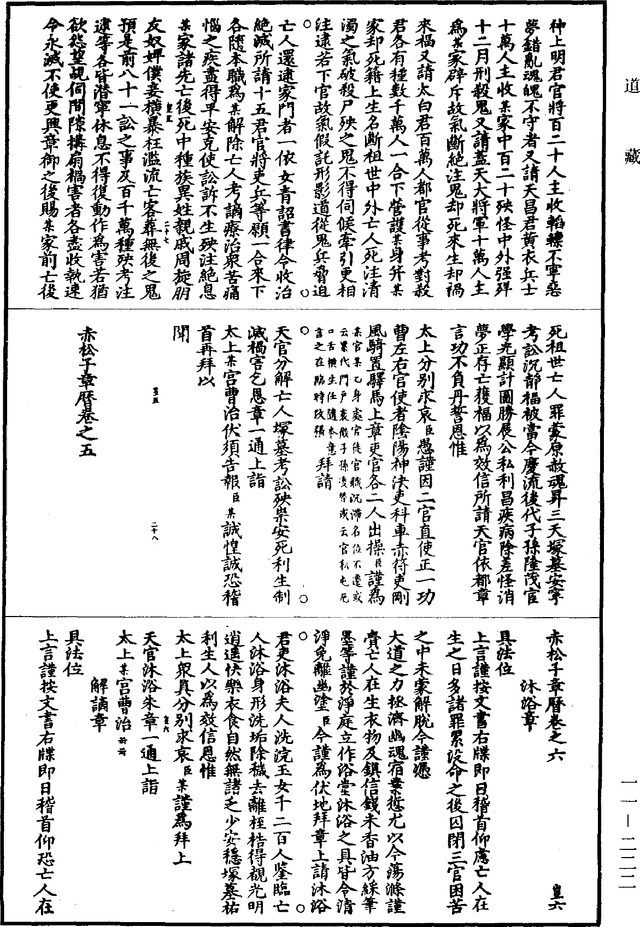 道藏
神上明君官將百二十人主收輡轗不寧惡
夢錯亂魂魄不守者又請天昌君黃衣兵士
十萬人主收某家中百二十殃怪中外强殍
十二月刑殺鬼又請蓋天大將軍十萬人主
為某家辟斥故氣斷絕注鬼却死來生却禍
來福又請太白君百萬人都官從事考對殺
君各有種數千萬人一合下營護某身并某
家却死籍上生名斷祖世中外亡人死注清
濁之氣破殺尸殃之鬼不得伺候牽引更相
注逮若下官故氣假託形影道從鬼兵脅迫
亡人還逮家門者一依女青詔書律令收治
絕滅所請十五君官將吏兵等願一合來下
各隨本職為某解除亡人考讁療治衆苦痛
惱之疾盡得平安克使訟訴不生殃注絕息
某家諸先亡後死中種族異姓親戚周旋朋
友奴婢僕妾橫暴枉濫流亡客葬無後之鬼
預是前八十一訟之事及百千萬種殃考注
逮等各皆潛寧休息不得復動作為害若猶
欲怨望覬伺間隙搆扇禍害者各盡收執速
令永滅不使更興章御之後賜某家前亡後
死祖世亡人罪蒙原赦魂昇三天塚墓安寧
考訟沉靜福被當今慶流後代子孫隆茂官
學光顯計圖勝展公私利昌疾病除差怪消
夢正存亡獲福以為效信所請天官依都章
言功不負丹誓恩惟
太上分別求哀臣愚謹因二官直使正一功
曹左右官使者陰陽神決吏科車赤符吏剛
風騎置驛馬上章吏官各二人出操臣謹為
某官某乙身處官徒官職沉滯名位不遷或
云累代門戶衰微子孫淩替或云官私屯死
口舌橫生任隨本意
言之在臨時改張
拜請
天官分解亡人塚墓考訟殃祟安死利生制
滅禍害乞恩章一通上詣
太上某宮曹治伏須告報臣某誠惶誠恐稽
首再拜以
聞
赤松子章曆卷之五
赤松子章曆卷之六
沐浴章
具法位
上言謹按文書右牒即日稽首仰慮亡人在
生之日多諸罪累沒命之後囚閉三官困苦
之中未蒙解脫今謹憑
大道之力拯濟幽魂宿業愆尤以今蕩滌謹
賫亡人在生衣物及鎮信錢米香油方綵筆
墨等謹於淨庭立作浴堂沐浴之具皆令清
淨免離幽塗臣今謹為伏地拜章上請沐浴
君吏沐浴夫人洗浣玉女千二百人鑒臨亡
人沐浴身形洗垢除穢去離桎梏得覩光明
逍遙快樂衣食自然無諸乏少安穩塚墓祐
利生人以為效信恩惟
太上眾真分別求哀臣某謹為拜上
天官沐浴朱章一通上詣
太上某宮曹治云云
解讁章
具法位
上言謹按文書右牒即日稽首仰恐亡人在
一一－二二二